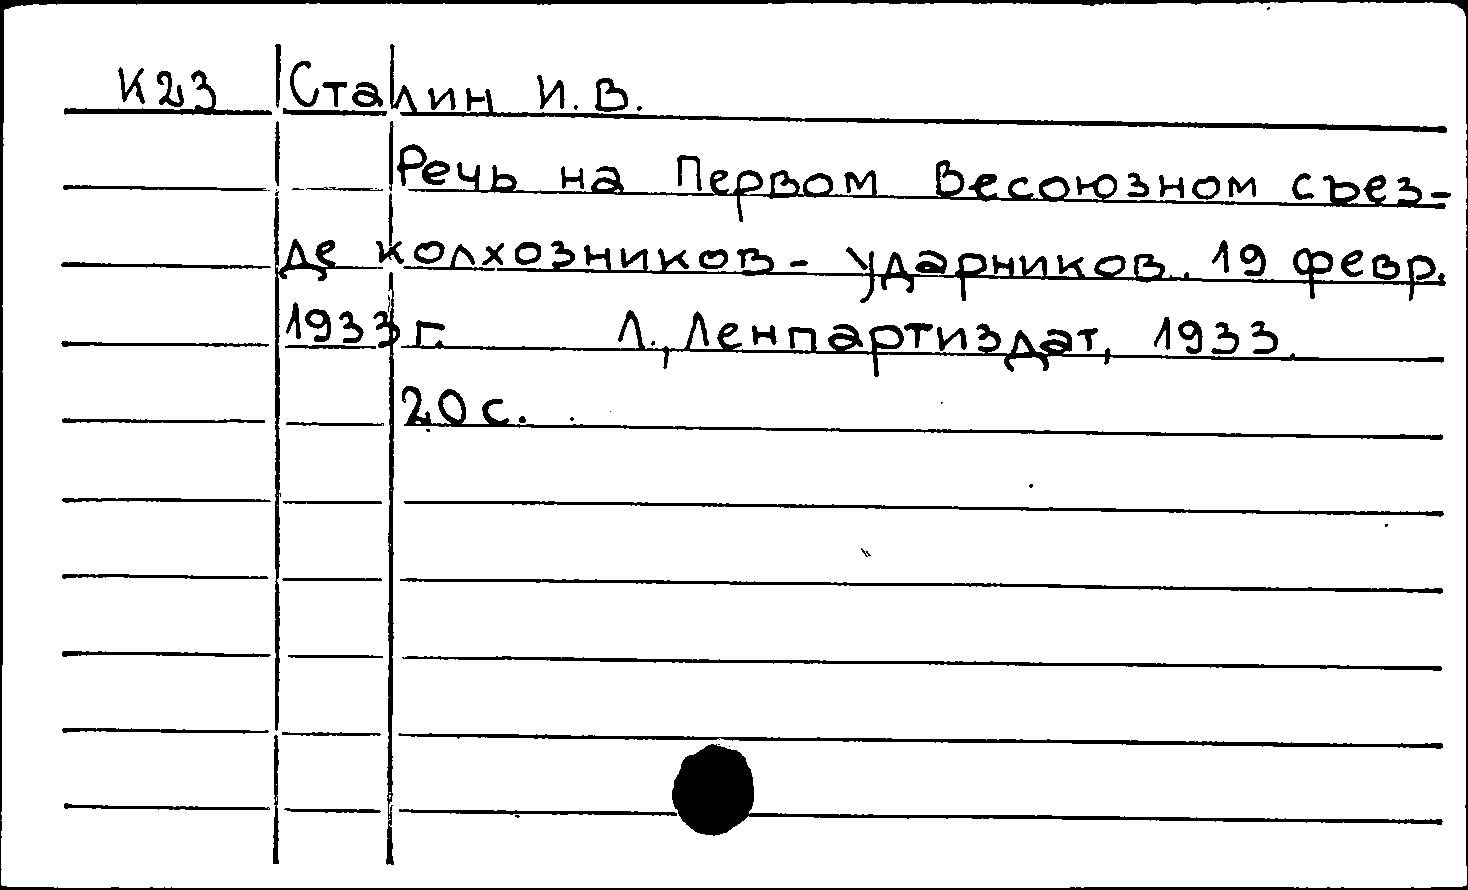 К23 Сталин И. В.
Речь на Первом Весоюзном съез-
де колхозников-ударников. 19 февр.
1933 г. Л., Ленпартиздат, 1933.
20 с.